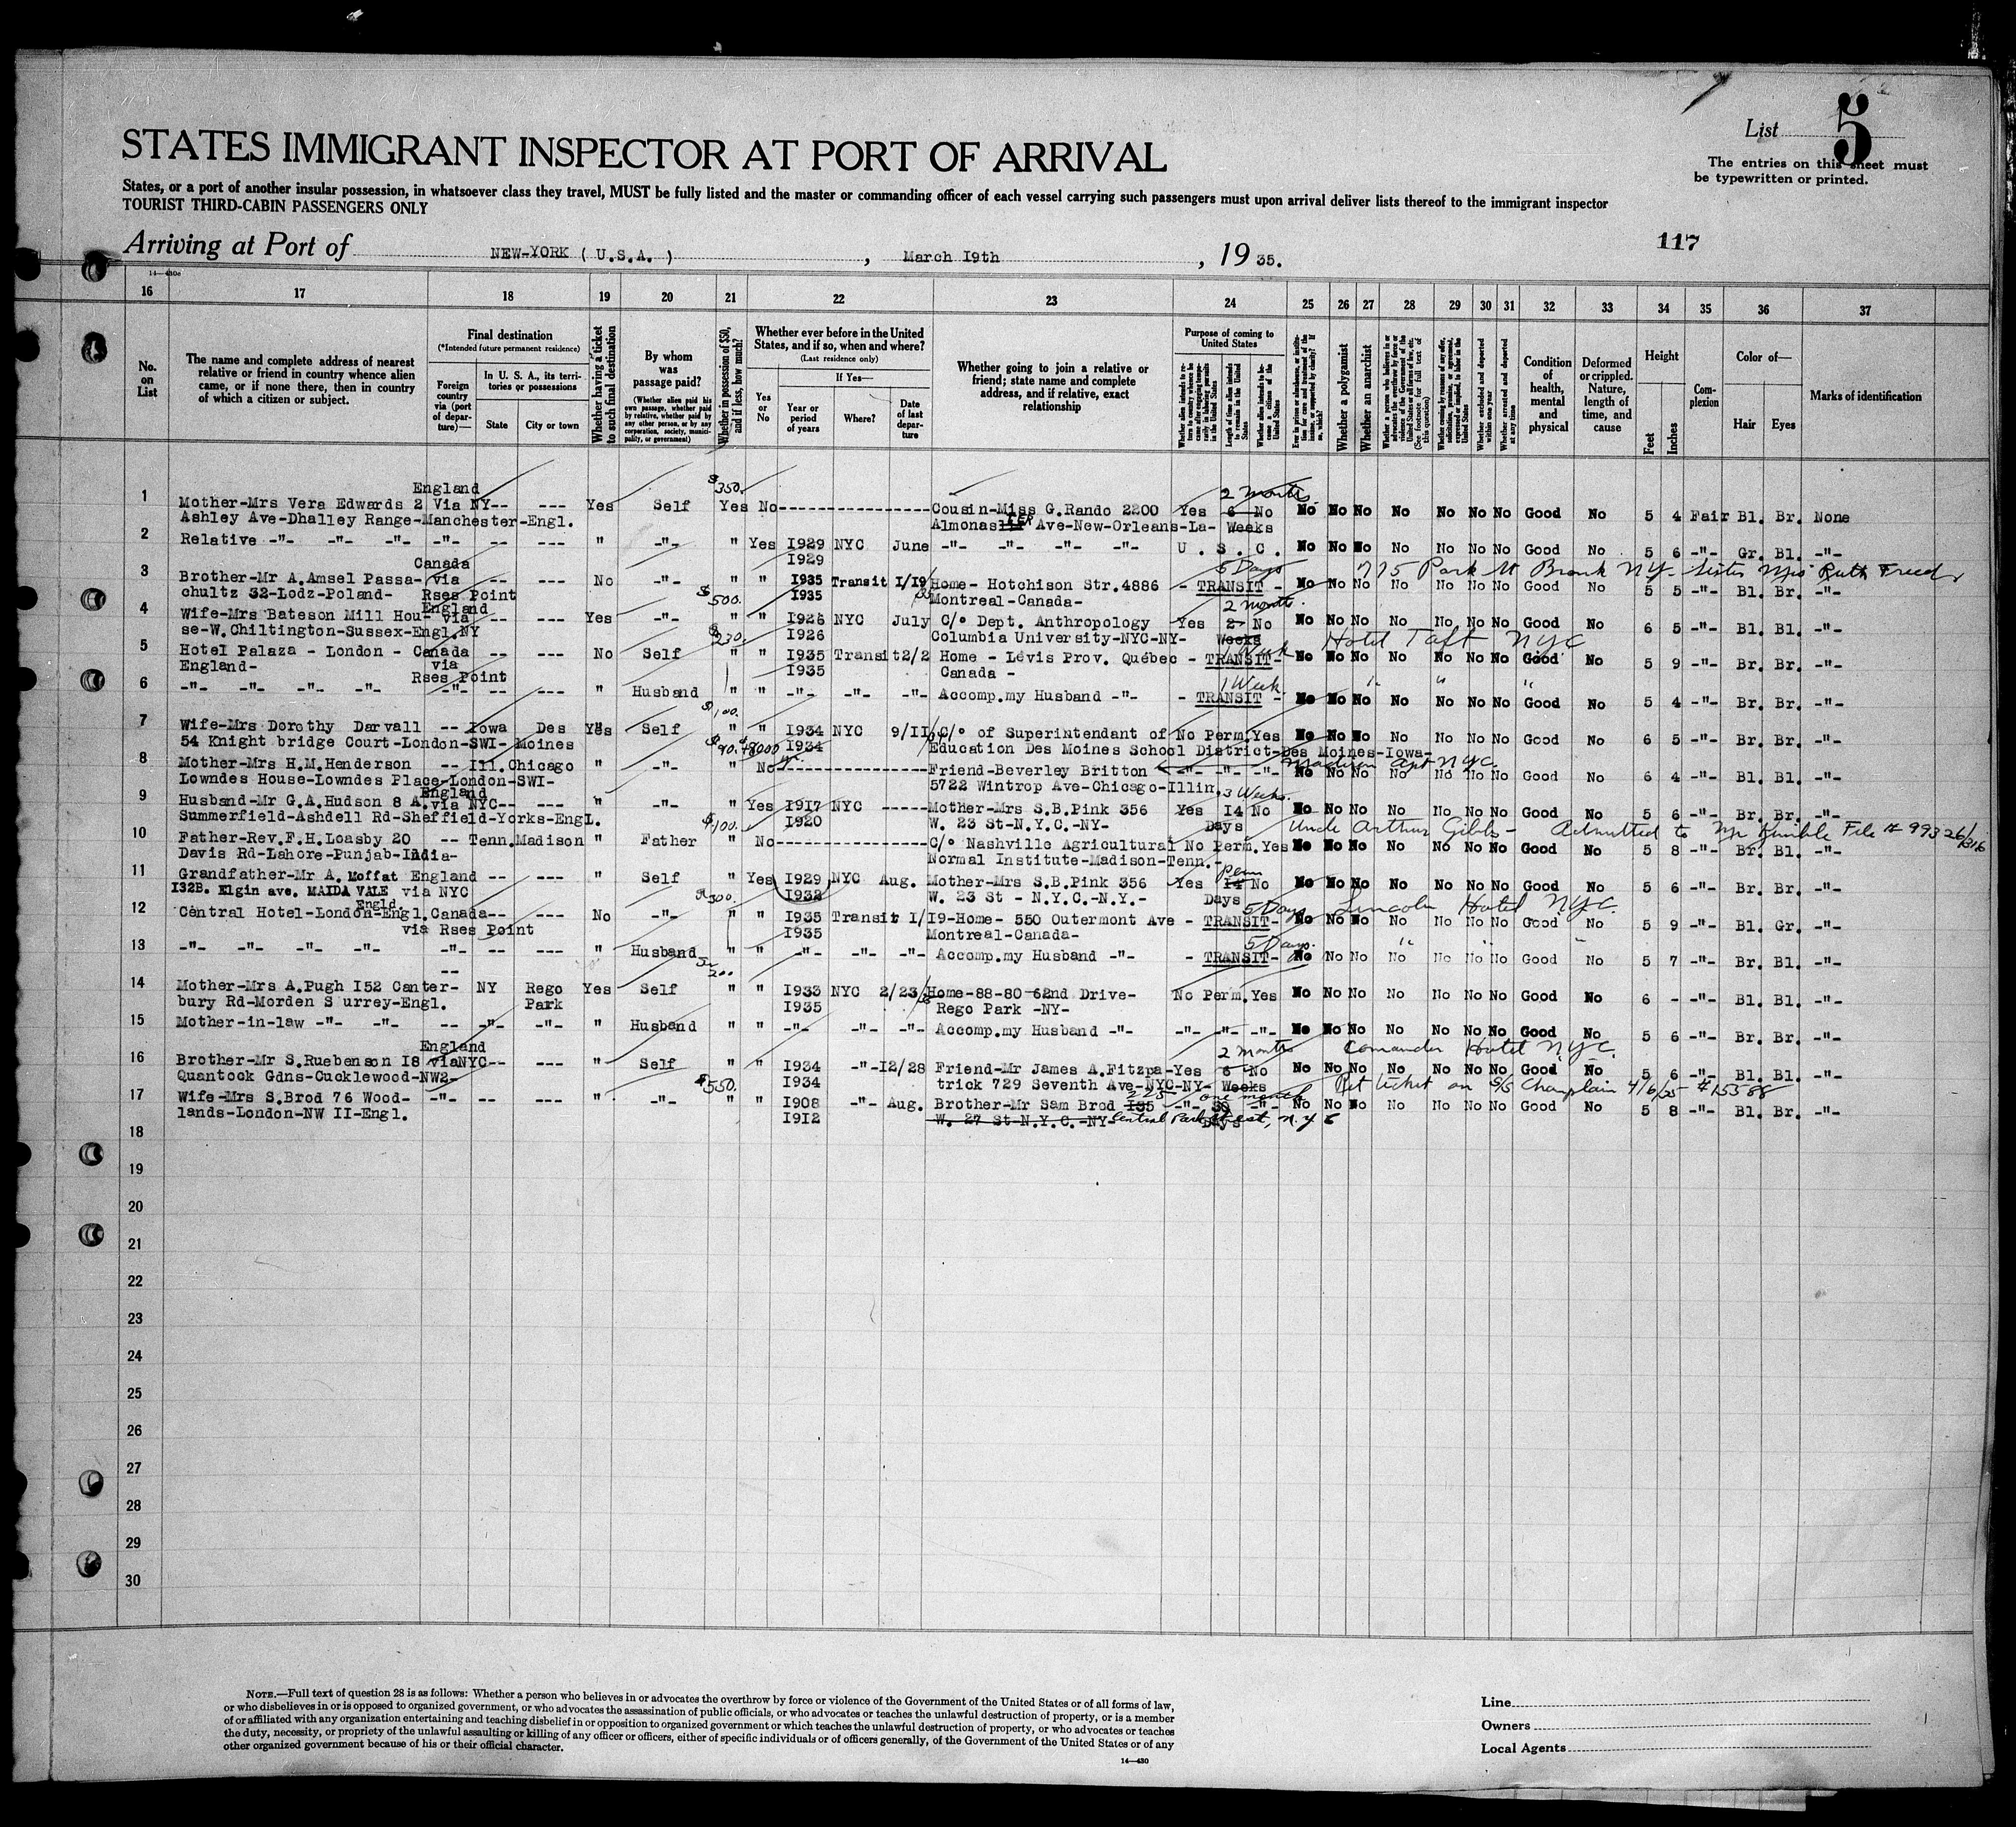 List 5
STATES IMMIGRANT INSPECTOR AT PORT OF ARRIVAL
The entries on this sheet must
be typewritten or printed.
States, or a port of another insular possession, in whatsoever class they travel, MUST be fully listed and the master or commanding officer of each vessel carrying such passengers must upon arrival deliver lists thereof to the immigrant inspector
TOURIST THIRD-CABIN PASSENGERS ONLY
117
Arriving at Port of NEW-YORK ( U.S.A. ) , March I9th , 19 35.
16 17 18 19 20 21 22 23 24 25 26 27 28 29 30 31 32 33 34 35 36 37
No. on List
The name and complete address of nearest relative or friend in country whence alien came, or if none there, then in country of which a citizen or subject.
Final destination
(*Intended future permanent residence)
Foreign country via (port of departure)—
In U. S. A., its territories or possessions
State City or town
Whether having a ticket to such final destination
By whom was passage paid?
(Whether alien paid his own passage, whether paid by relative, whether paid by any other person, or by any corporation, society, municipality, or government)
Whether in possession of $50, and if less, how much?
Whether ever before in the United States, and if so, when and where?
(Last residence only)
Yes or No
If Yes—
Year or period of years Where? Date of last departure
Whether going to join a relative or friend; state name and complete address, and if relative, exact relationship
Purpose of coming to United States
Length of time alien intends to remain in the United States
Whether alien intends to become a citizen of the United States
Whether a polygamist
Whether an anarchist
Whether excluded and deported within one year
Whether arrested and deported at any time
Condition of health, mental and physical
Deformed or crippled. Nature, length of time, and cause
Height
Feet Inches
Complexion
Color of—
Hair Eyes
Marks of identification
England $350. 2 months
1 Mother-Mrs Vera Edwards 2 Via NY-- --- Yes Self Yes No---------------Cousin-Miss G.Rando 2200 Yes 6 No No No No No No No No Good No 5 4 Fair Bl. Br. None
Ashley Ave-Dhalley Range-Manchester-Engl. Almonaster Ave-New-Orleans-La- Weeks
2 Relative -"- -"- -"- -"- -- --- " -"- " Yes I929 NYC June -"- -"- -"- -"- U . S . C . No No No No No No No Good No 5 6 -"- Gr. Bl. -"-
Canada I929 5 Days 775 Park St Bronk NY- Sister Mrs Ruth Freed
3 Brother-Mr A.Amsel Passa- via -- --- No -"- " " I935 Transit I/I9/35 Home- Hotchison Str.4886 - TRANSIT- No No No No No No No Good No 5 5 -"- Bl. Br. -"-
chultz 32-Lodz-Poland- Rses Point $500. I935 Montreal-Canada- 2 months.
4 Wife-Mrs Bateson Mill Hou- England via -- --- Yes -"- " " I926 NYC July C/o Dept. Anthropology Yes 2 No No No No No No No No Good No 6 5 -"- Bl. Bl. -"-
se-W.Chiltington-Sussex-Engl.NY $230. I926 Columbia University-NYC-NY- Weeks Hotel Taft NYC
5 Hotel Palaza - London - Canada -- --- No Self " " I935 Transit 2/2 Home - Lévis Prov. Québec - TRANSIT- 1 Week No No No No No No No Good No 5 9 -"- Br. Br. -"-
England- via Rses Point I935 Canada -
6 -"- -"- -"- -"- -"- -- --- " Husband " " -"- -"- -"- Accomp.my Husband -"- - TRANSIT - 1 Week No No No No No No No Good No 5 4 -"- Br. Br. -"-
$100.
7 Wife-Mrs Dorothy Darvall -- Iowa Des Yes Self " " I934 NYC 9/II C/o of Superintendant of No Perm.Yes No No No No No No No Good No 6 5 -"- Br. Br. -"-
54 Knight bridge Court-London-SWI- Moines $90. I934 Education Des Moines School District-Des Moines-Iowa-
8 Mother-Mrs H.M.Henderson -- Ill.Chicago " -"- " No---------------Friend-Beverley Britton -"- -"- -"- No No No No No No No Good No 6 4 -"- Bl. Bl. -"-
Lowndes House-Lowndes Place-London-SWI- 5722 Wintrop Ave-Chicago-Illin.
England 3 Weeks.
9 Husband-Mr G.A.Hudson 8 A.via NYC-- --- " -"- " Yes I9I7 NYC -----Mother-Mrs S.B.Pink 356 Yes I4 No No No No No No No No Good No 5 6 -"- Br. Br. -"-
Summerfield-Ashdell Rd-Sheffield-Yorks-Engl. $100. I920 W. 23 St-N.Y.C.-NY- Days Uncle Arthur Gibbs - Admitted to File # 99326/316
10 Father-Rev.F.H.Loasby 20 -- Tenn.Madison " Father " No---------------C/o Nashville Agricultural No Perm.Yes No No No No No No No Good No 5 8 -"- Br. Bl. -"-
Davis Rd-Lahore-Punjab-India- Normal Institute-Madison-Tenn.-
11 Grandfather-Mr A. Moffat England -- --- " Self " Yes I929 NYC Aug. Mother-Mrs S.B.Pink 356 Yes I4 Perm No No No No No No No No Good No 5 6 -"- Br. Br. -"-
I32B. Elgin ave. MAIDA VALE via NYC Engld. $300. I932 W. 23 St - N.Y.C.-N.Y.- Days 5 Days Lincoln Hotel NYC.
12 Central Hotel-London-Engl.Canada-- --- No -"- " " I935 Transit I/I9-Home- 550 Outermont Ave - TRANSIT- No No No No No No No Good No 5 9 -"- Bl. Gr. -"-
via Rses Point I935 Montreal-Canada- 5 Days.
13 -"- -"- -"- -"- -"- -- --- " Husband " " -"- -"- -"- Accomp.my Husband -"- - TRANSIT- No No No No No No No Good No 5 7 -"- Br. Bl. -"-
200
14 Mother-Mrs A.Pugh I52 Canter- -- NY Rego Yes Self " " I933 NYC 2/23/35 Home-88-80-62nd Drive- No Perm.Yes No No No No No No No Good No 6 - -"- Bl. Bl. -"-
bury Rd-Morden S urrey-Engl. Park I935 Rego Park -NY-
15 Mother-in-law -"- -"- -- -"- -"- " Husband " " -"- -"- -"- Accomp.my Husband -"- -"- -"- -"- No No No No No No No Good No 5 6 -"- Br. Br. -"-
England 2 months Comander Hotel NYC.
16 Brother-Mr S.Ruebenson I8 viaNYC-- --- " Self " " I934 -"-I2/28 Friend-Mr James A.Fitzpa-Yes 6 No No No No No No No No Good No 5 6 -"- Bl. Bl. -"-
Quantock Gdns-Cucklewood-NW2- $550. I934 trick 729 Seventh Ave-NYC-NY- Weeks Ret ticket on S/S Champlain 4/6/35 #15588
17 Wife-Mrs S.Brod 76 Wood- -"- -- --- " -"- " " I908 -"- Aug. Brother-Mr Sam Brod I35 225 -"- 30 one month -"- No No No No No No No Good No 5 8 -"- Bl. Br. -"-
lands-London-NW II-Engl. I9I2 W. 27 St-N.Y.C.-NY- Central Park West, N.Y.C Days
18
19
20
21
22
23
24
25
26
27
28
29
30
NOTE.—Full text of question 28 is as follows: Whether a person who believes in or advocates the overthrow by force or violence of the Government of the United States or of all forms of law,
or who disbelieves in or is opposed to organized government, or who advocates the assassination of public officials, or who advocates or teaches the unlawful destruction of property, or is a member
of or affiliated with any organization entertaining and teaching disbelief in or opposition to organized government or which teaches the unlawful destruction of property, or who advocates or teaches
the duty, necessity, or propriety of the unlawful assaulting or killing of any officer or officers, either of specific individuals or of officers generally, of the Government of the United States or of any
other organized government because of his or their official character.
14—430
Line
Owners
Local Agents